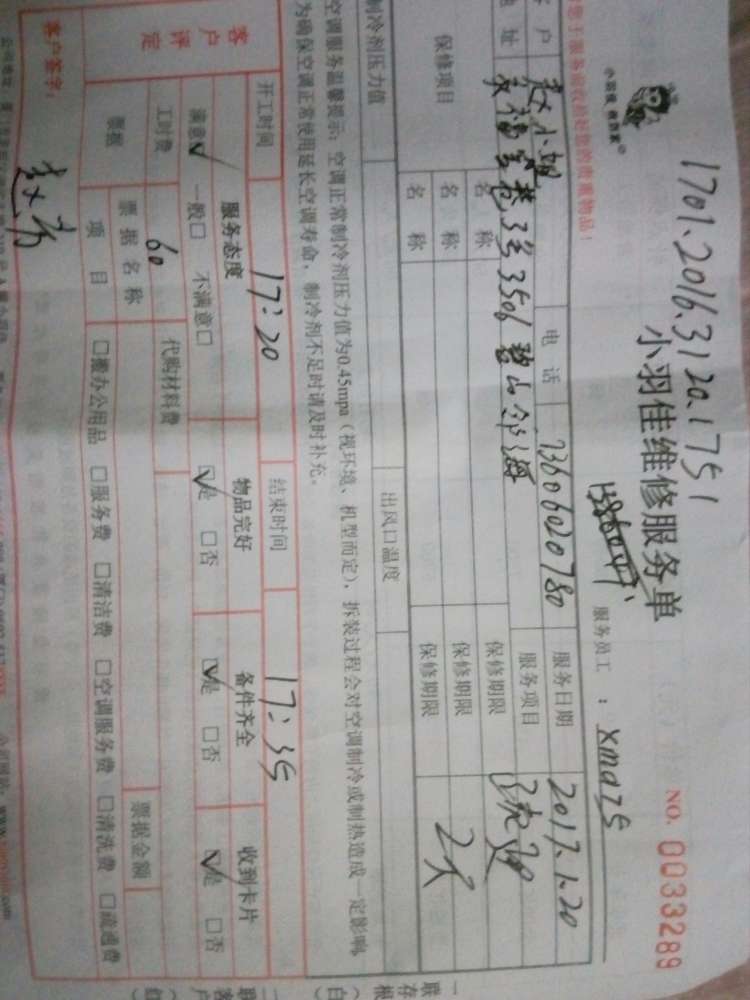 1701.2016.3120.1751
小羽佳维修服务单
NO. 0033289
服务员工：xma25
您于服务前收拾处您的贵重物品！
客户 赵小姐 电话 13606020780 服务日期 2017.1.20
地址 3号3506 服务项目 疏通
保修项目 名称 保修期限
名称 保修期限 2天
名称 保修期限
制冷剂压力值 出风口温度
空调服务温馨提示：空调正常制冷剂压力值为0.45mpa（视环境、机型而定），拆装过程会对空调制冷或制热造成一定影响，
为确保空调正常使用延长空调寿命，制冷剂不足时请及时补充。
开工时间 17:20 结束时间 17:35
客户评定 服务态度 物品完好 备件齐全 收到卡片
满意☑ 一般□ 不满意□ ☑是 □否 ☑是 □否 ☑是 □否
工时费 60 代购材料费
票据 票据名称 票据金额
项目 □搬办公用品 □服务费 □清洁费 □空调服务费 □清洗费 □疏通费
客户签字：
公司地址